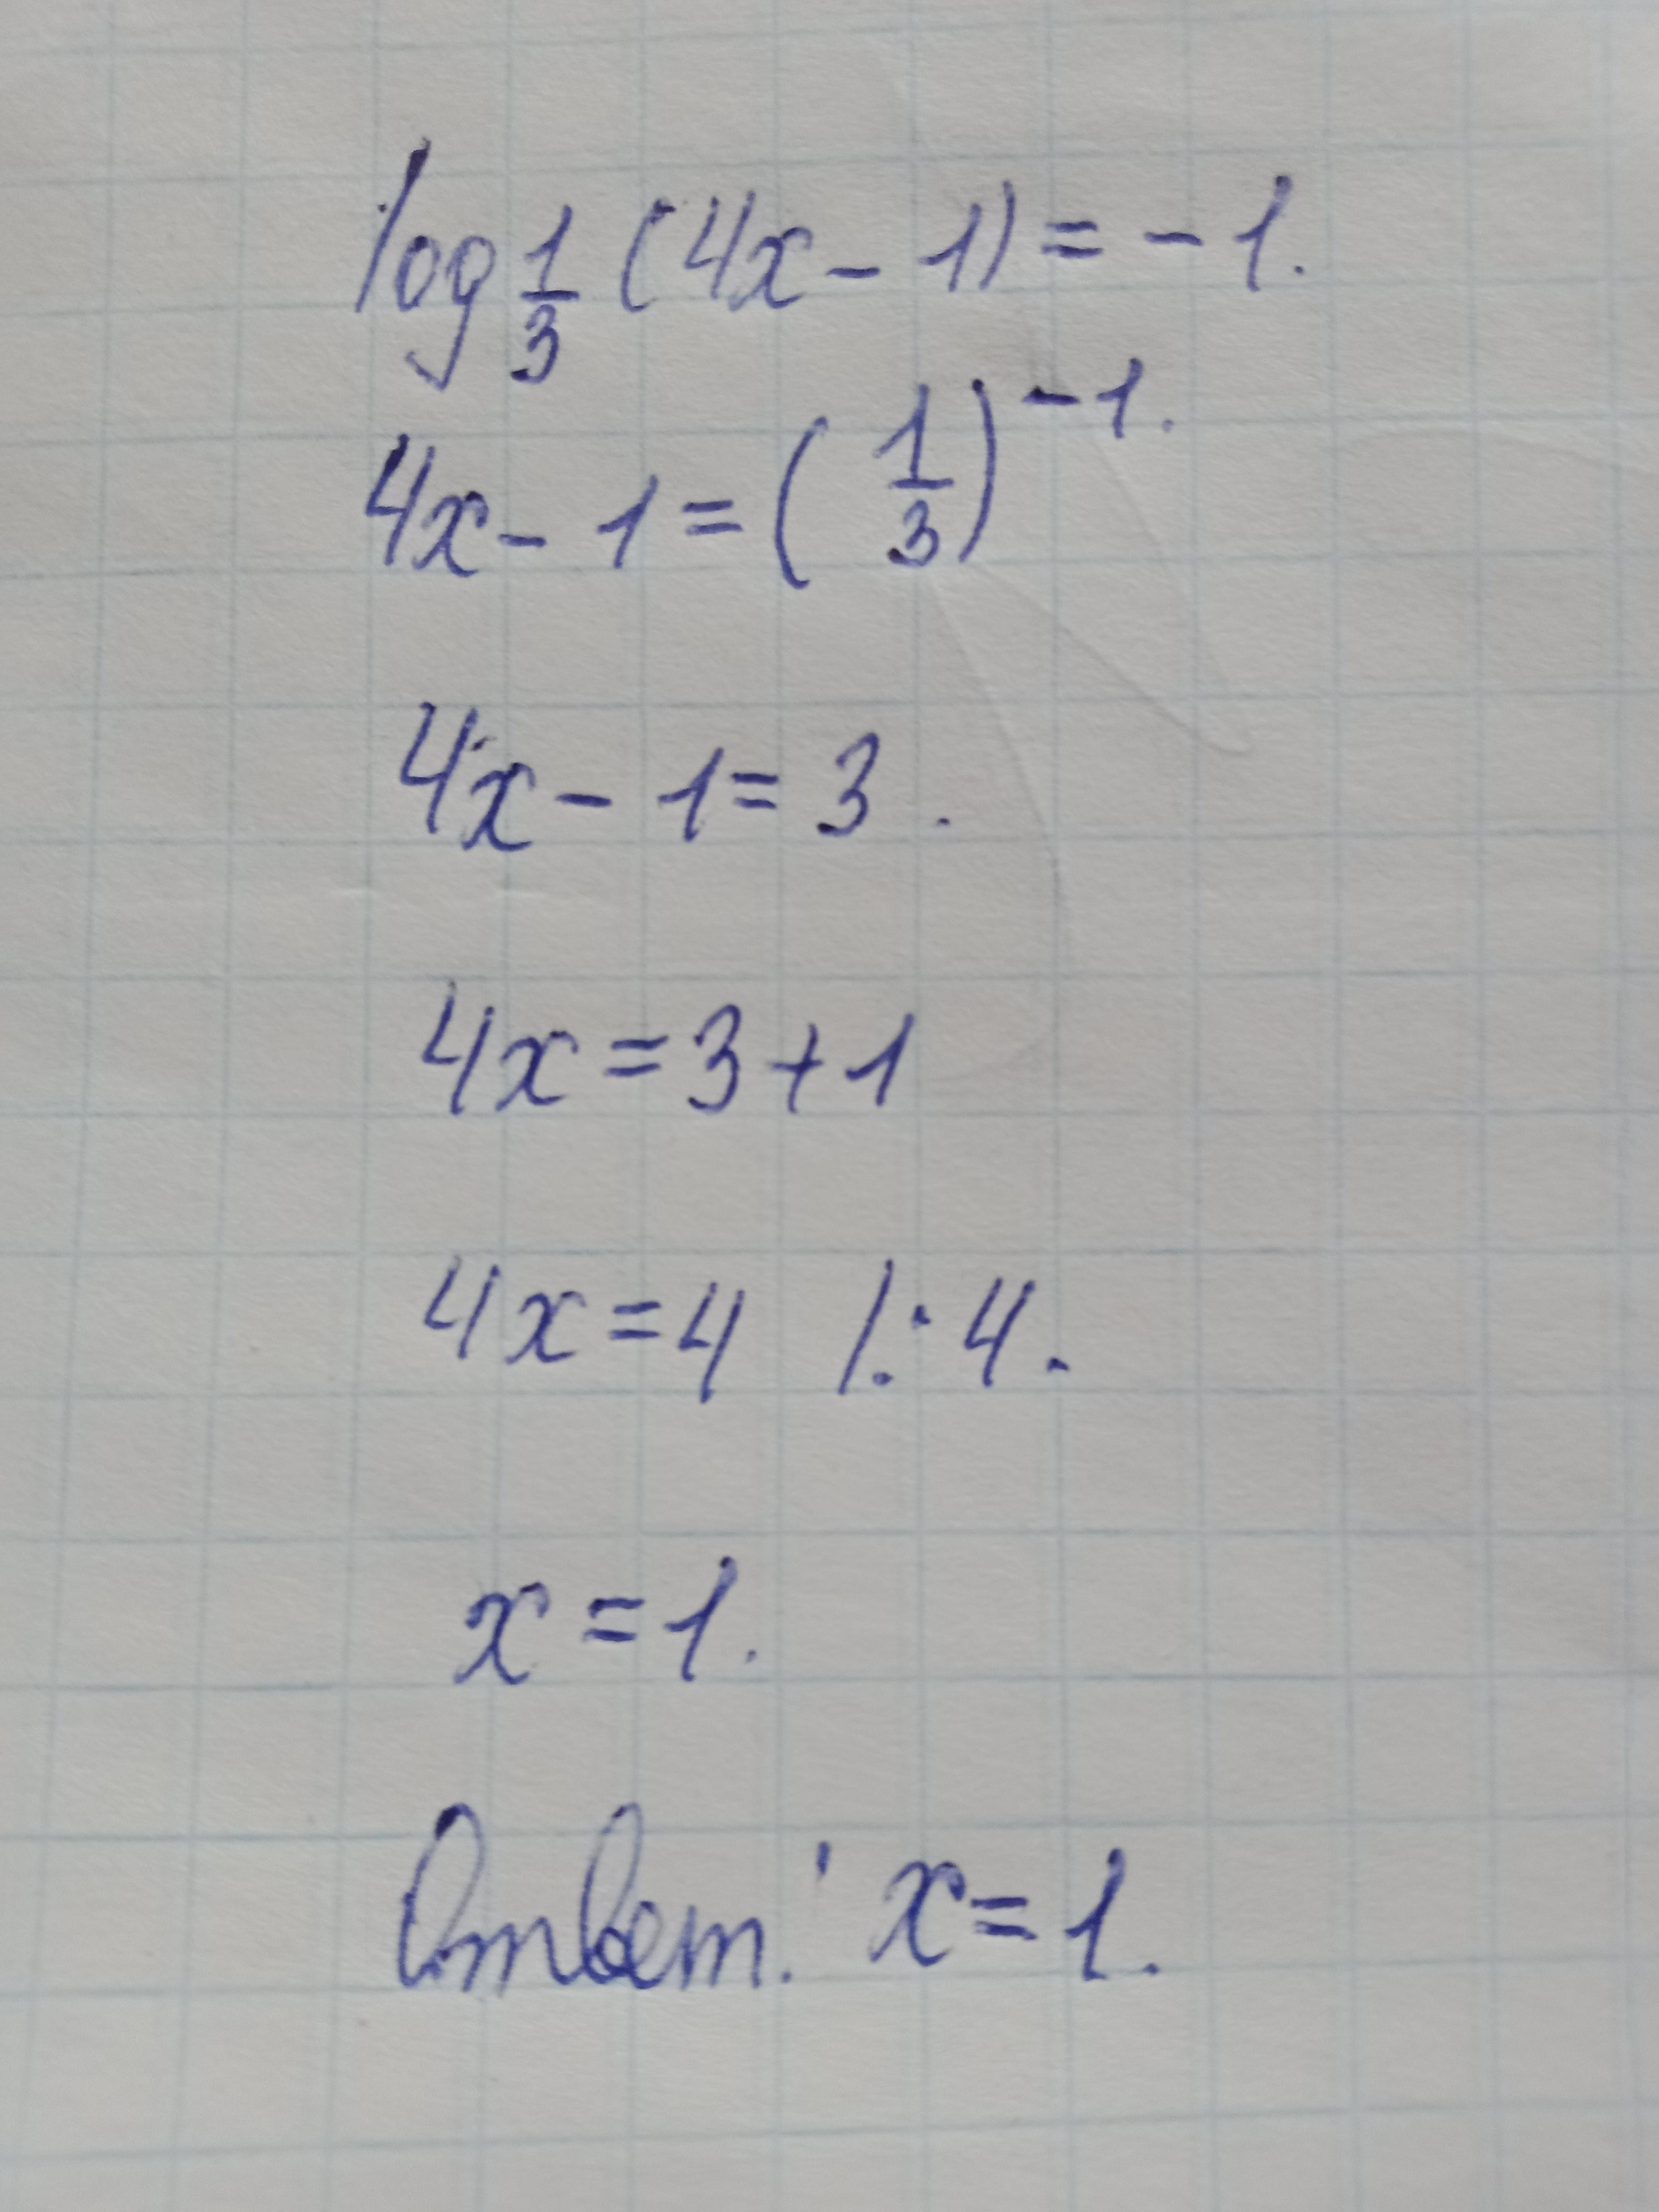 log 1/3 (4x - 1) = - 1.
4x - 1 = (1/3)^-1.
4x - 1 = 3.
4x = 3 + 1
4x = 4 /: 4.
x = 1.
Ответ: x = 1.